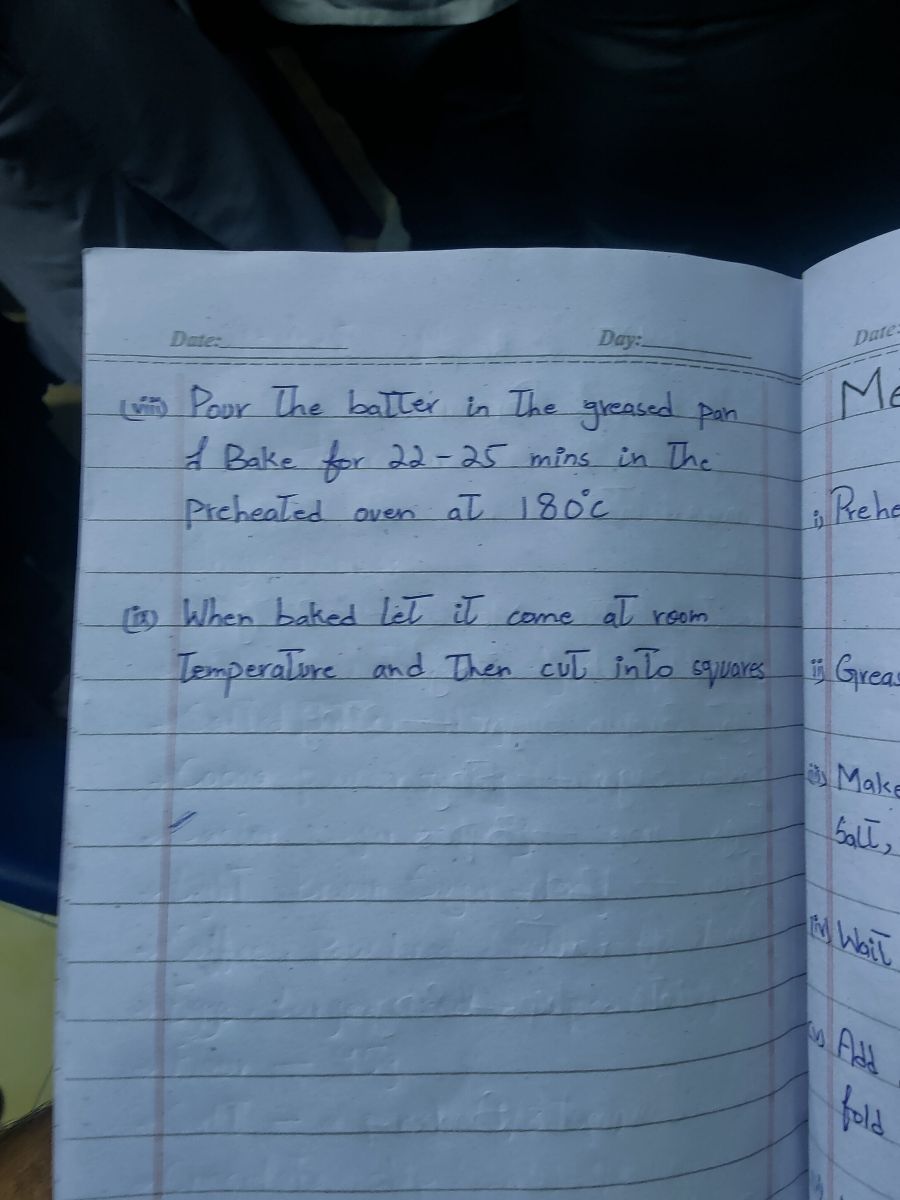 Date:
Day:
(viii) Pour The batter in The greased pan
& Bake for 22-25 mins in The
Preheated oven at 180°C
(ix) When baked let it come at room
Temperature and Then cut into squares
Date:
i)
ii)
iii) Make
Salt,
iv) Wait
(v) Add
fold